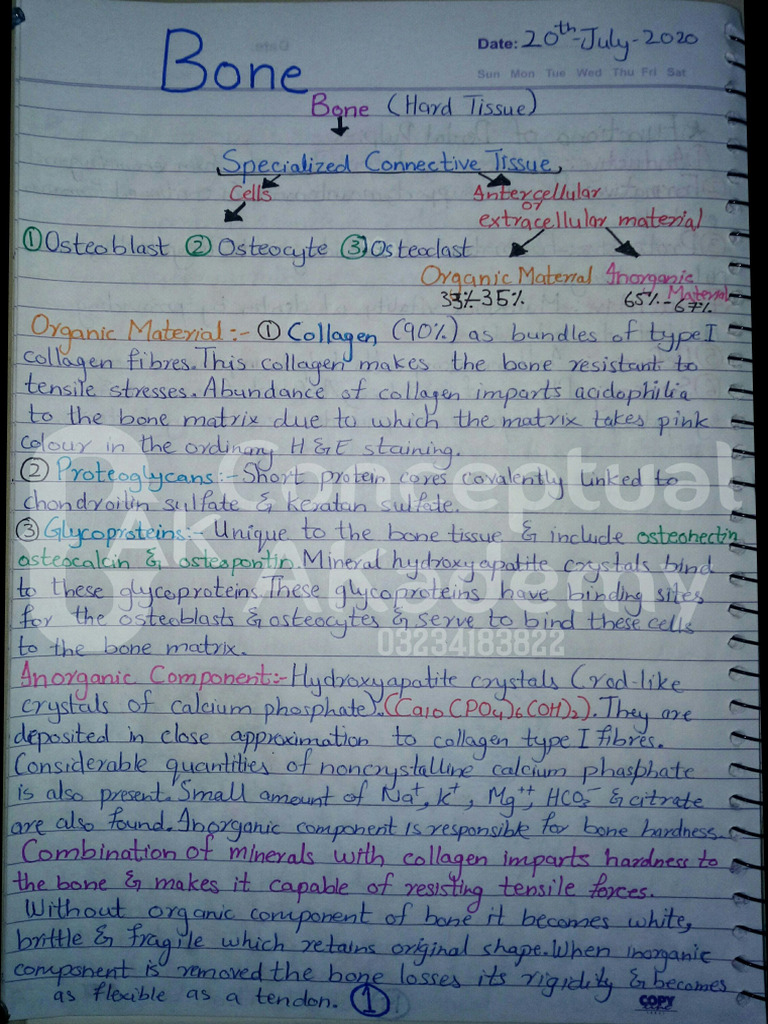 Bone
Date: 20th-July-2020
Sun Mon Tue Wed Thu Fri Sat
Bone (Hard Tissue)
Specialized Connective Tissue
Cells
Intercellular
or
extracellular material
① Osteoblast ② Osteocyte ③ Osteoclast
Organic Material Inorganic Material
33%-35% 65%-67%
Organic Material:- ① Collagen (90%) as bundles of type I
collagen fibres. This collagen makes the bone resistant to
tensile stresses. Abundance of collagen imparts acidophilia
to the bone matrix due to which the matrix takes pink
colour in the ordinary H & E staining.
② Proteoglycans:- Short protein cores covalently linked to
chondroitin sulfate & keratan sulfate.
③ Glycoproteins:- Unique to the bone tissue & include osteonectin
osteocalcin & osteopontin. Mineral hydroxyapatite crystals bind
to these glycoproteins. These glycoproteins have binding sites
for the osteoblasts & osteocytes & serve to bind these cells
to the bone matrix.
Inorganic Component:- Hydroxyapatite crystals (rod-like
crystals of calcium phosphate). (Ca10(PO4)6(OH)2). They are
deposited in close approximation to collagen type I fibres.
Considerable quantities of noncrystalline calcium phasphate
is also present. Small amount of Na+, K+, Mg++, HCO3- & citrate
are also found. Inorganic component is responsible for bone hardness.
Combination of minerals with collagen imparts hardness to
the bone & makes it capable of resisting tensile forces.
Without organic component of bone it becomes white,
brittle & fragile which retains original shape. When inorganic
component is removed the bone losses its rigidity & becomes
as flexible as a tendon. ①
COPY
AK Conceptual
Akademy
03234183822